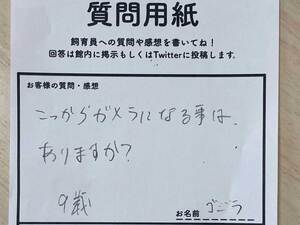 質問用紙
飼育員への質問や感想を書いてね！
回答は館内に掲示もしくはTwitterに投稿します。
お客様の質問・感想
こっからガメラになる事は、
ありますか？
9歳
お名前 ゴジラ